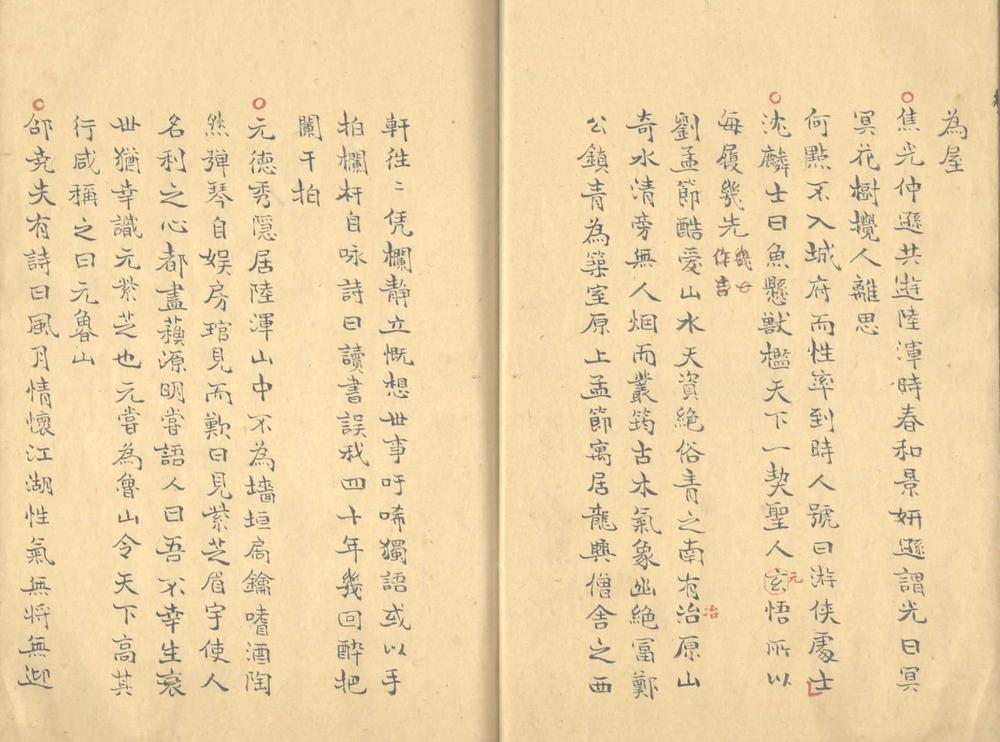 為屋
焦光仲遜共遊陸渾時春和景妍遜謂光曰冥
冥花樹攪人離思
何點不入城府而性率到時人號曰游俠處士
沈麟士曰魚懸獸檻天下一契聖人玄悟所以
元
每履幾先
幾世
作吉
劉孟節酷愛山水天資絕俗青之南有冶原山
冶
奇水清旁無人烟而叢筠古木氣象幽絕富鄭
公鎮青為築室原上孟節寓居龍興僧舍之西
軒往〻凭欄靜立慨想世事吁唏獨語或以手
拍欄杆自咏詩曰讀書誤我四十年幾回醉把
闌干拍
元德秀隱居陸渾山中不為墻垣扃鑰嗜酒陶
然彈琴自娛房琯見而歎曰見紫芝眉宇使人
名利之心都盡蘓源明嘗語人曰吾不幸生衰
世猶幸識元紫芝也元嘗為魯山令天下高其
行咸稱之曰元魯山
郃尭夫有詩曰風月情懷江湖性氣無将無迎